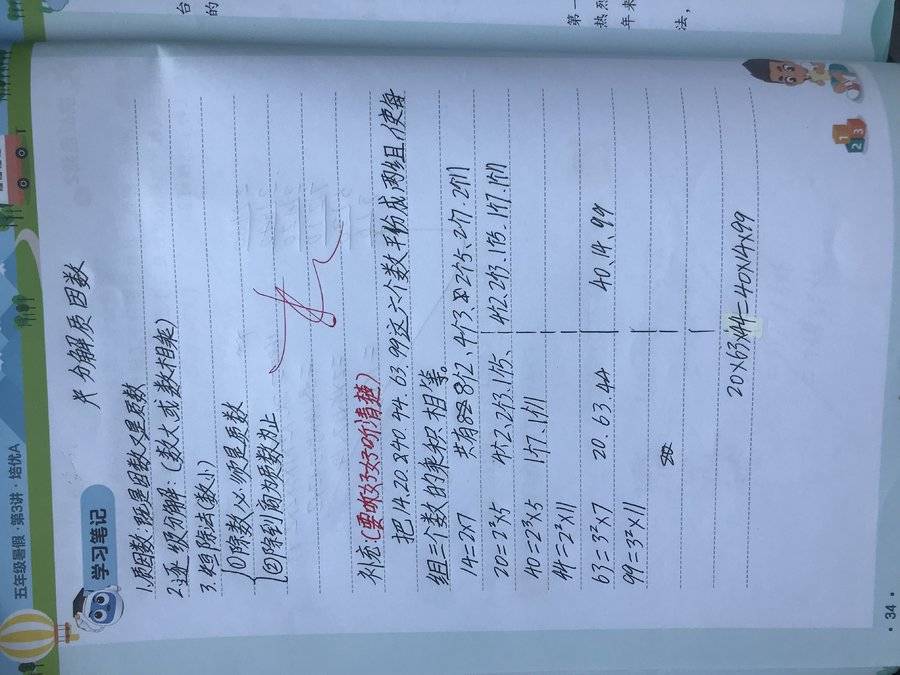 五年级暑假·第3讲·培优A
学习笔记
分解质因数
1.质因数:既是因数又是质数
2.逐级分解:(数大或数相乘)
3.短除法(数小)
①除数必须是质数
②除到商为质数为止
补充(要听好好听清楚)
把14.20.40.44.63.99这六个数平均分成两组,使每
组三个数的乘积相等。
14=2×7 共有8个2、4个3、2个5、2个7、2个11
20=2²×5 4个2、2个3.1个5、 4个2.2个3.1个5.1个7.1个11
40=2³×5 1个7.1个11
44=2²×11
63=3²×7 20.63.44 40.14、99
99=3²×11
20×63×44=40×14×99
·34·
台
的
第一
热烈
年来
法,
1
2
3